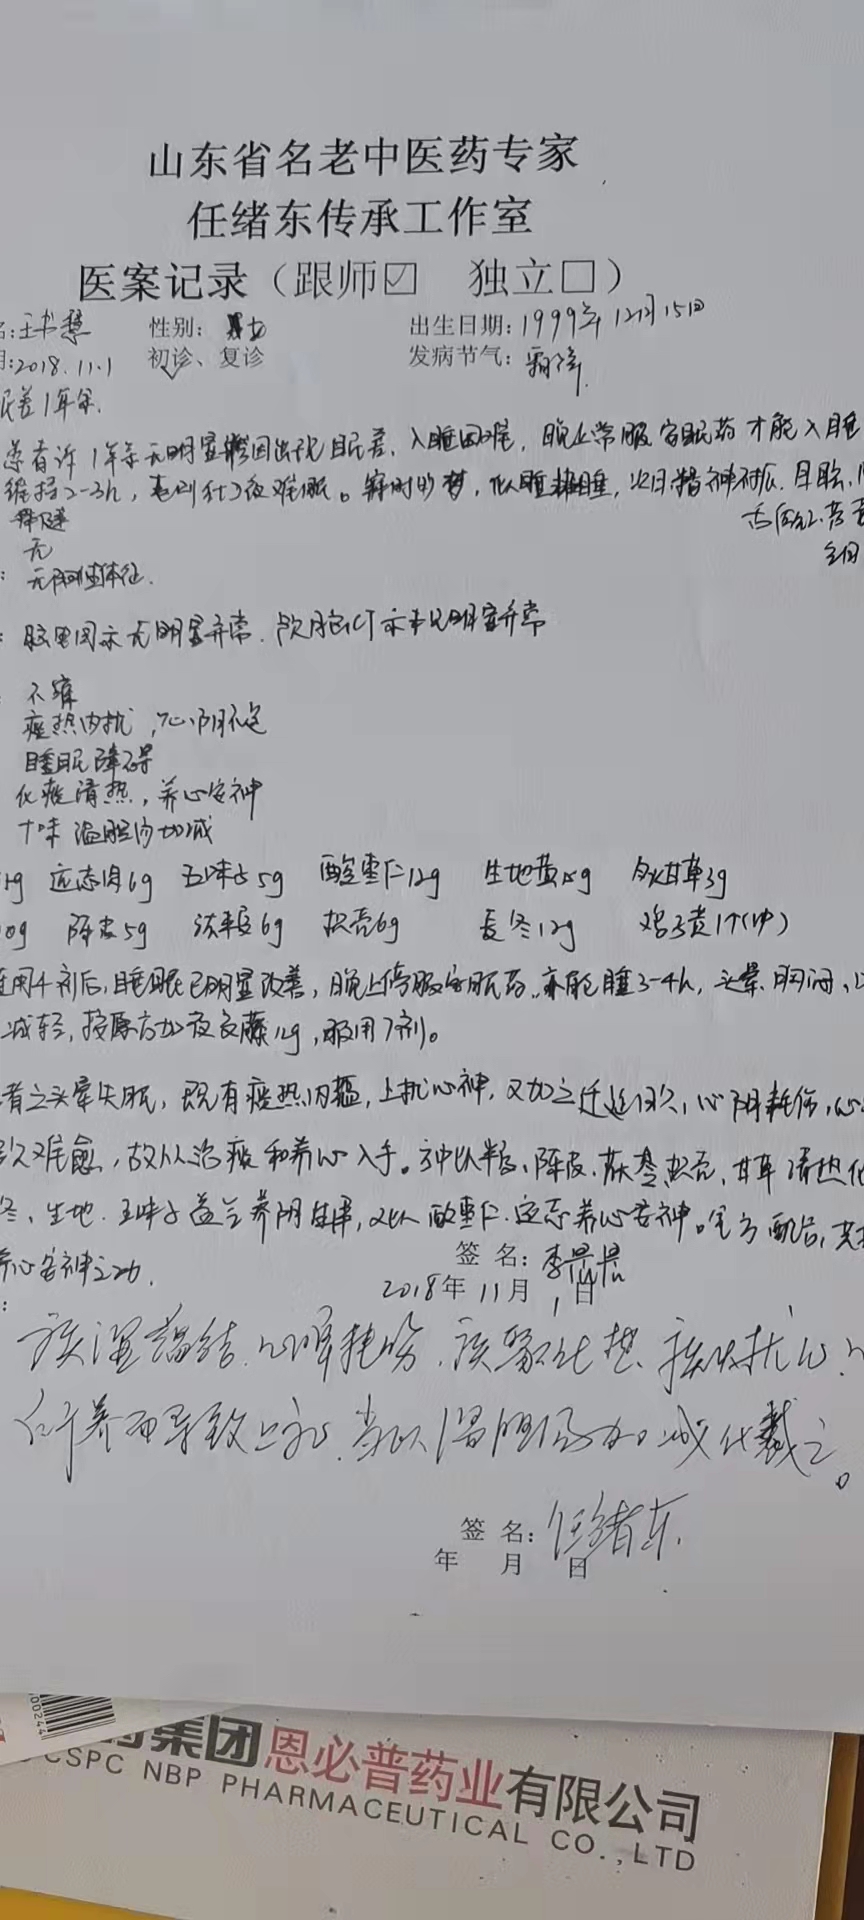 山东省名老中医药专家
任绪东传承工作室
医案记录（跟师☑ 独立□）
名:王书慧 性别: 女 出生日期:1999年12月15日
期:2018.11.1 初诊、复诊 发病节气:霜降
眠差1年余.
患者诉1年余无明显诱因出现眠差、入睡困难,晚上常服安眠药才能入睡
维持2-3h,夜难眠。多梦,似睡非睡,次日精神不振.目眩、
舌质红.苔黄
细
无
: 无阳性体征.
: 脑电图示无明显异常.颅脑CT示未见明显异常
: 不寐
痰热内扰,心阴不足
睡眠障碍
化痰清热,养心安神
十味温胆汤加减
g 远志肉6g 五味子5g 酸枣仁12g 生地黄15g 炙甘草3g
0g 陈皮5g 茯苓6g 枳壳6g 麦冬12g 鸡子黄1个(冲)
连用4剂后,睡眠已明显改善,晚上停服安眠药,亦能睡3-4h,头晕.胸闷、
减轻,按原方加夜交藤12g,服用7剂。
者之头晕失眠,既有痰热内蕴,上扰心神,又加之迁延日久,心阴耗伤,心
久难愈,故从治痰和养心入手。方中以半夏、陈皮、茯苓、枳壳、甘草清热化
冬、生地.五味子益气养阴生津,又以酸枣仁.远志养心安神。全方配合,共
养心安神之功.
签 名:李景景
2018年11月1日
:
痰湿蕴结.心阴耗伤.痰聚化热.痰火扰心.
所养而导致.当以温胆汤加减化裁之。
签 名:任绪东
年 月 日
00244
药集团恩必普药业有限公司
CSPC NBP PHARMACEUTICAL CO.,LTD